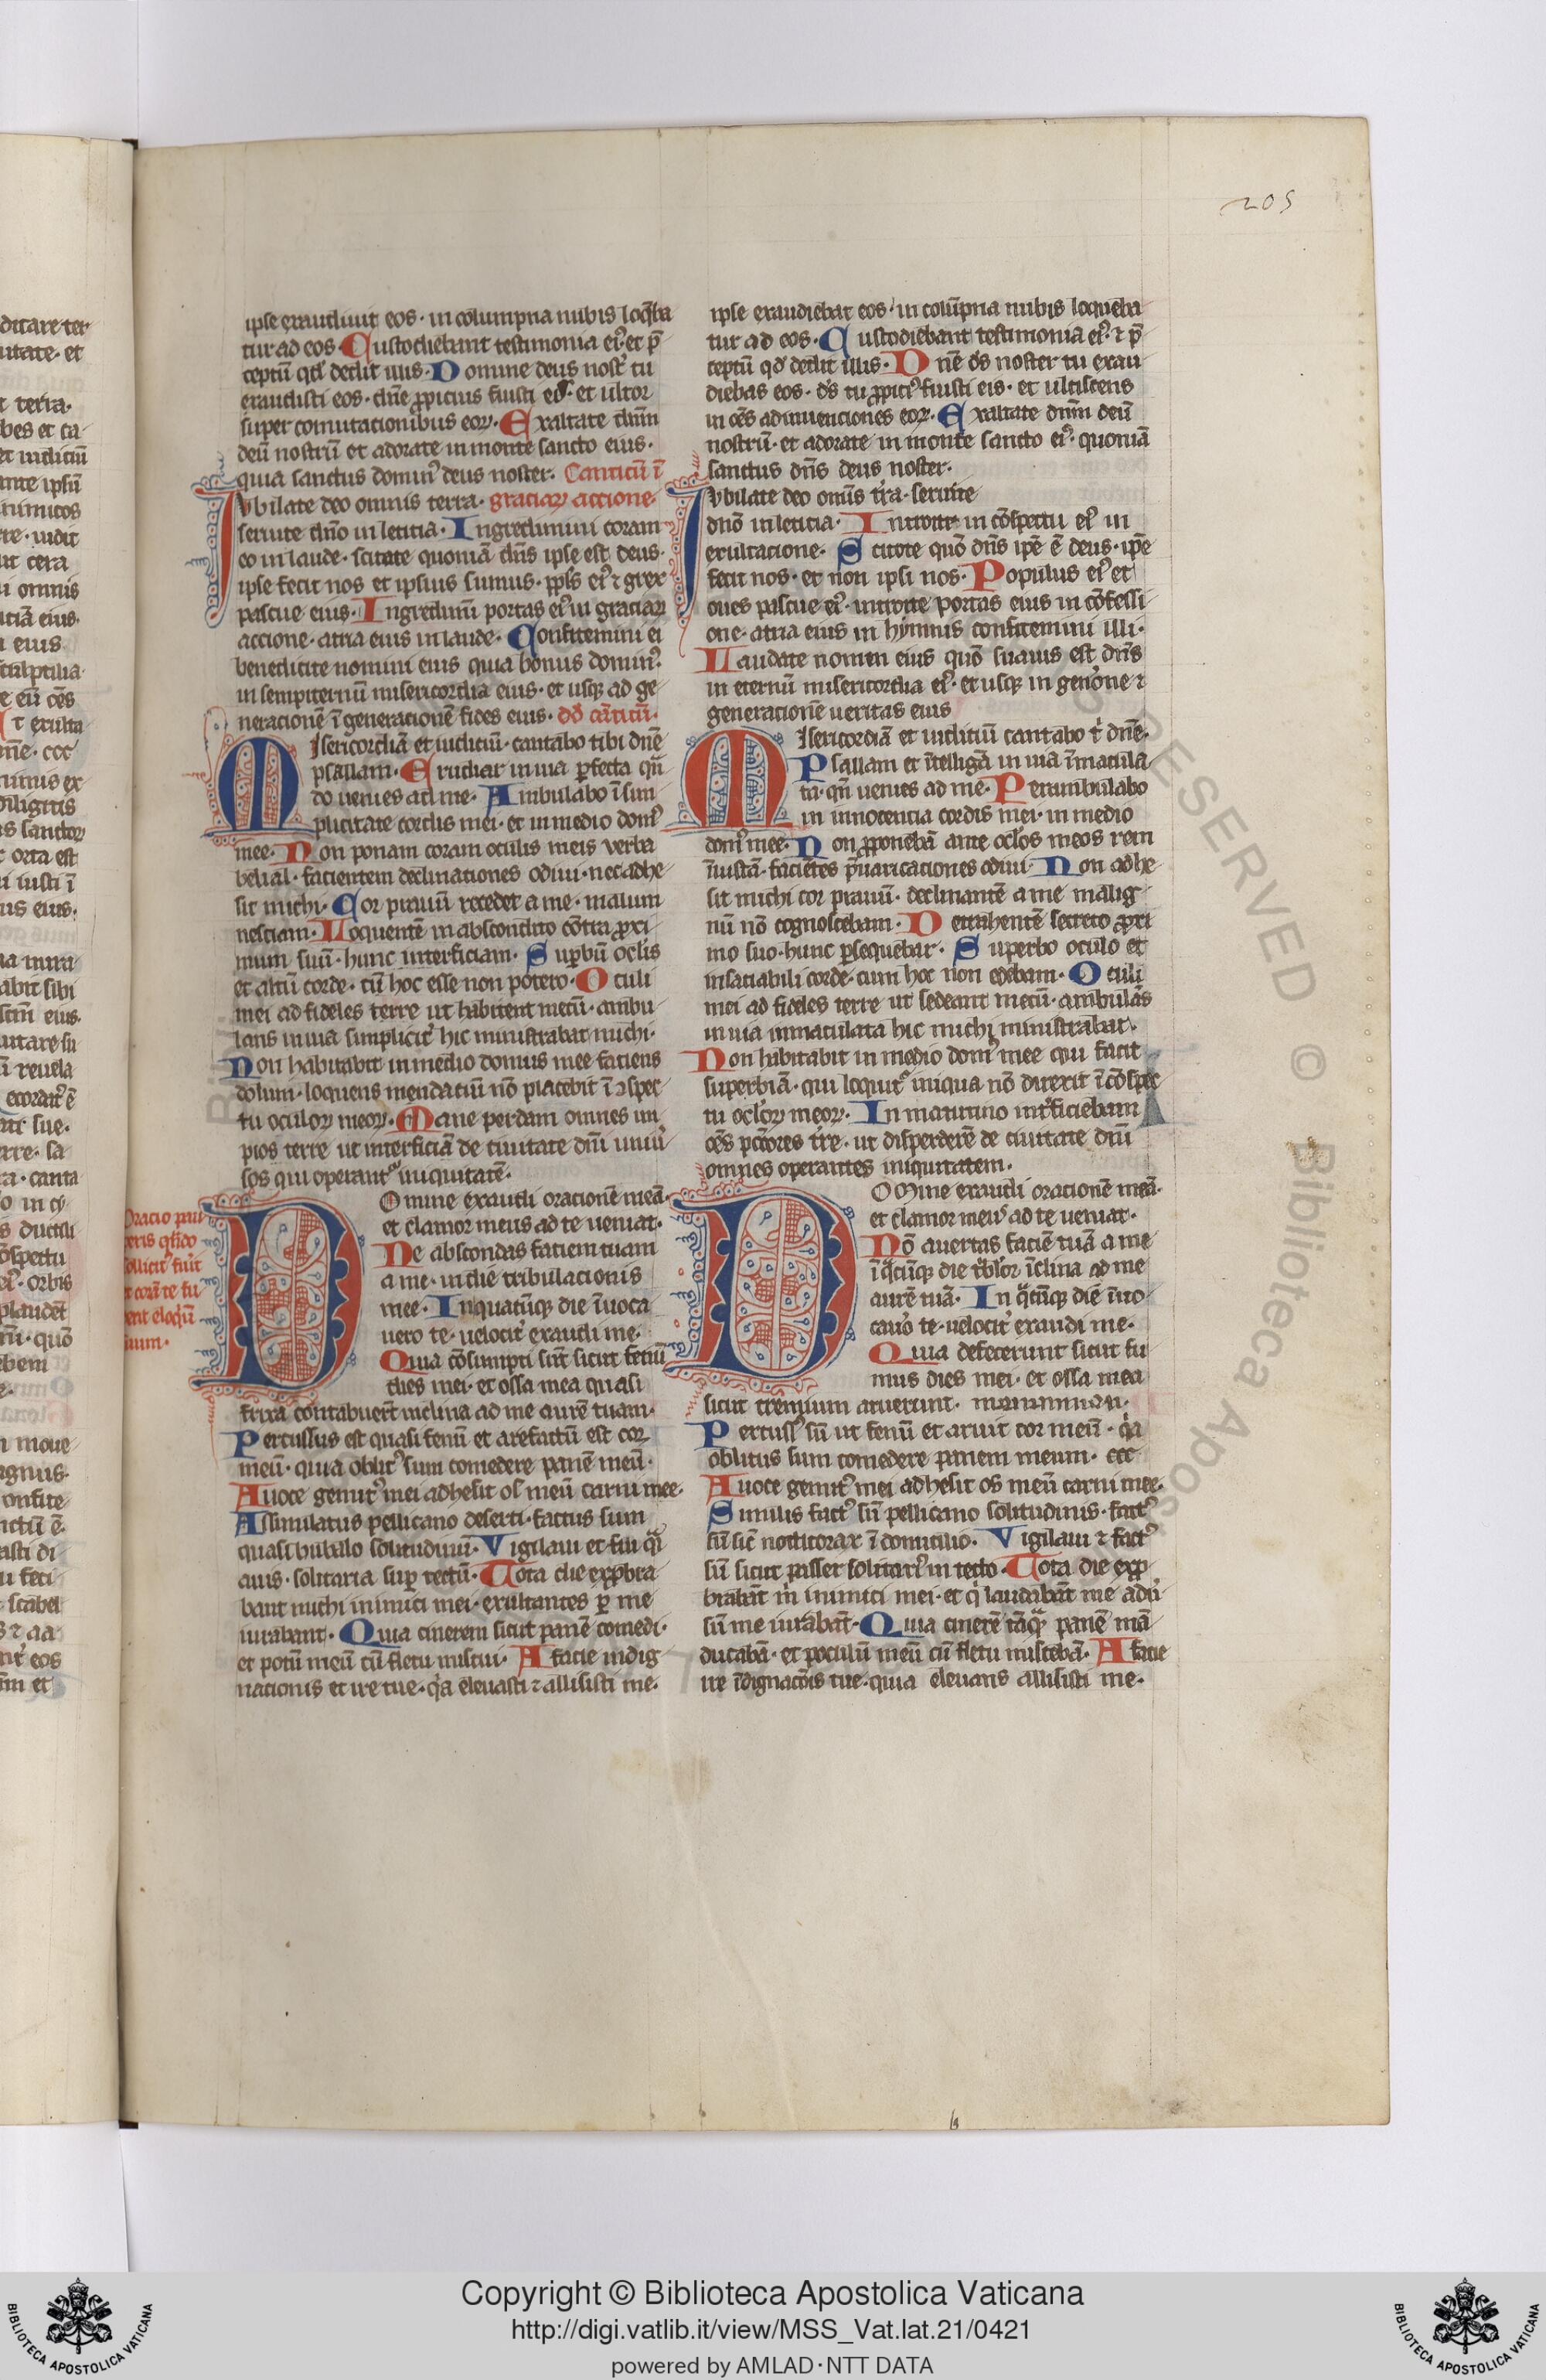 205
ipse exaudiuit eos · in columpna nubis loq̄ba
tur ad eos · Custodiebant testimonia eiꝰ · et p̄
ceptū qd̄ dedit illis · Domine deus nost̄ tu
exaudisti eos · dn̄e ꝓpicius fuisti eis · et ultor
super comutacionibus eoꝝ · Exaltate dn̄m
deū nostrū et adorate in monte sancto eius ·
quia sanctus dominꝰ deus noster · Canticū ī
Iubilate deo omnis terra · graciaꝝ accione
seruite dn̄o in leticia · Ingredimini coram
eo in laude · scitate quoniā dn̄s ipse est deus ·
ipse fecit nos et ipsius sumus · ppl̄s eiꝰ ⁊ grex
pascue eius · Ingredimī portas eiꝰ in graciaꝝ
accione · atria eius in laude · Confitemini ei
benedicite nomini eius quia bonus dominꝰ ·
in sempiternū misericordia eius · et usqꝫ ad ge
neracionē ī generacionē fides eius · dd̄ cāticū ·
Misericordiā et iudiciū · cantabo tibi dn̄e
psallam · Erudiar in uia ꝑfecta qn̄
do uenies ad me · Ambulabo ī sim
plicitate cordis mei · et in medio domꝰ
mee · Non ponam coram oculis meis verba
belial · facientem declinationes odiui · nec adhe
sit michi · Cor prauū recedet a me · malum
nesciam · Loquentē in abscondito cōtra ꝓxi
mum suū · hunc interficiam · Suꝑbū ocl̄is
et altū corde · cū hoc esse non potero · Oculi
mei ad fideles terre ut habitent mecū · ambu
lans in uia simpliciṫ hic ministrabat michi ·
Non habitabit in medio domus mee faciens
dolum · loquens mendaciū nō placebit ī ꝯspec
tu oculoꝝ meoꝝ · Mane perdam omnes im
pios terre ut interficiā de ciuitate dn̄i uniu̇
sos qui operantᷣ iniquitatē ·
Domine exaudi orationē meā ·
et clamor meus ad te ueniat ·
Ne abscondas faciem tuam
a me · in die tribulacionis
mee · In quacūqꝫ die īuoca
uero te · uelociṫ exaudi me ·
Quia cōsumpti sūt sicut fenū
dies mei · et ossa mea quasi
frixa contabuerūt inclina ad me aurē tuam ·
Percussus est quasi fenū et arefactū est cor
meū · quia oblitꝰ sum comedere panē meū ·
A uoce gemitꝰ mei adhesit os meū carni mee ·
Assimilatus pellicano deserti · factus sum
quasi bubalo solitudinū · Vigilaui et fui qᵃsi
auis · solitaria suꝑ tectū · Tota die exꝓbra
bant michi inimici mei · exultantes ꝑ me
iurabant · Quia cinerem sicut panē comedi ·
et potū meū cū fletu miscui · A facie indig
nationis et ire tue · qᵃ eleuasti ⁊ allisisti me ·
Oracio pau
peris qn̄do
sollicitꝰ fuit
et corā te fu
dent eloqͥū
suum ·
ipse exaudiebat eos · in colūpna nubis loqueba
tur ad eos · Custodiebant testimonia eiꝰ · ⁊ p̄
ceptū qd̄ dedit illis · Dn̄e ds̄ noster tu exau
diebas eos · ds̄ tu ꝓpiciꝰ fuisti eis · et ulciscens
in oēs adinuenciones eoꝝ · Exaltate dn̄m deū
nostrū · et adorate in monte sancto eiꝰ · quoniā
sanctus dn̄s deus noster ·
Iubilate deo omīs t̄ra · seruite
dn̄o in leticia · Introite in cōspectu eiꝰ in
exultacione · Scitote quō dn̄s ip̄e ē deus · ip̄e
fecit nos · et non ipsi nos · Populus eiꝰ et
oues pascue eiꝰ · introite portas eius in cōfessi
one · atria eius in hymnis confitemini illi ·
Laudate nomen eius quō suauis est dn̄s
in eternū misericordia eiꝰ · et usqꝫ in genōne ⁊
generationē ueritas eius
Misericordiā et iudiciū cantabo t̄ dn̄e ·
Psallam et ītelligā in uiā īmacula
ta · qn̄ uenies ad me · Perambulabo
in innocentia cordis mei · in medio
domꝰ mee · Non ꝓponebā ante ocl̄os meos rem
īiustā · faciētes p̄uaricaciones odiui · Non adhe
sit michi cor prauū · declinantē a me malig
nū nō cognoscebam · Detrahentē secreto ꝓxi
mo suo · hunc ꝑsequebar · Superbo oculo et
insaciabili corde · cum hoc non edebam · Oculi
mei ad fideles terre ut sedeant mecū · ambulās
in uia immaculata hic michi ministrabat ·
Non habitabit in medio domꝰ mee qui facit
superbiā · qui loquitᷣ iniqua nō direxit ī cōspec
tu ocl̄oꝝ meoꝝ · In matutino int̄ficiebam
oēs pctōres t̄re · ut disperderē de ciuitate dn̄i
omnes operantes iniquitatem ·
DOmine exaudi orationē meā ·
et clamor meꝰ ad te ueniat ·
Nō auertas faciē tuā a me
ī qᵃcūqꝫ die t̄bl̄or īclina ad me
aurē tuā · In qᵃcūqꝫ die īuo
cauo̓ te · uelociṫ exaudi me ·
Quia defecerunt sicut fu
mus dies mei · et ossa mea
sicut cremium aruerunt ·
Percussꝰ sū ut fenū et aruit cor meū · qᵃ
oblitus sum comedere panem meum ·
A uoce gemitꝰ mei adhesit os meū carni mee ·
Similis factꝰ sū pellicano solitudinis · factꝰ
sū sic̄ notticorax ī domicilio · Vigilaui ⁊ factꝰ
sū sicut passer solitariꝰ in tecto · Tota die exꝓ
brabāt m̄ inimici mei · et qͥ laudabāt me adu̓
sū me iurabāt · Quia cinerē tāqᵃ panē mā
ducabā · et poculū meū cū fletu miscebā · A facie
ire īdignacōis tue · quia eleuans allisisti me ·
Copyright © Biblioteca Apostolica Vaticana
http://digi.vatlib.it/view/MSS_Vat.lat.21/0421
powered by AMLAD·NTT DATA
BIBLIOTECA APOSTOLICA VATICANA
BIBLIOTECA APOSTOLICA VATICANA